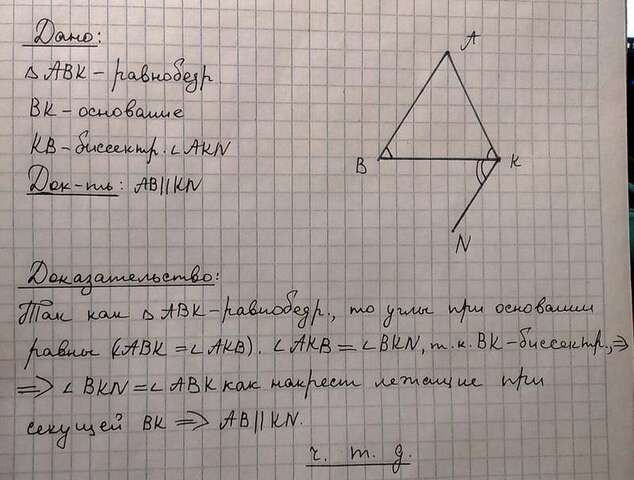 Дано:
A
△ ABK – равнобедр.
BK – основание
B
K
KB – биссектр. ∠AKN
Док-ть: AB||KN
N
Доказательство:
Так как △ ABK – равнобедр., то углы при основании
равны (∠ABK = ∠AKB). ∠AKB = ∠BKN, т.к. BK – биссектр., ⇒
⇒ ∠BKN = ∠ABK как накрест лежащие при
секущей BK ⇒ AB||KN.
ч. т. д.